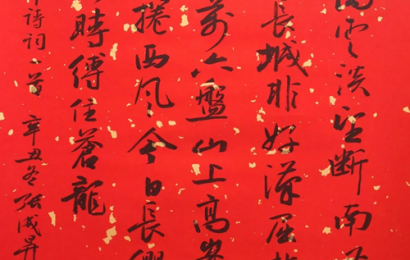 高雲淡望断南
長城非好漢屈指
萬六盤山上高峯
捲西风今日長纓
時縛住蒼龍
詩詞一首 辛丑冬 張成昇